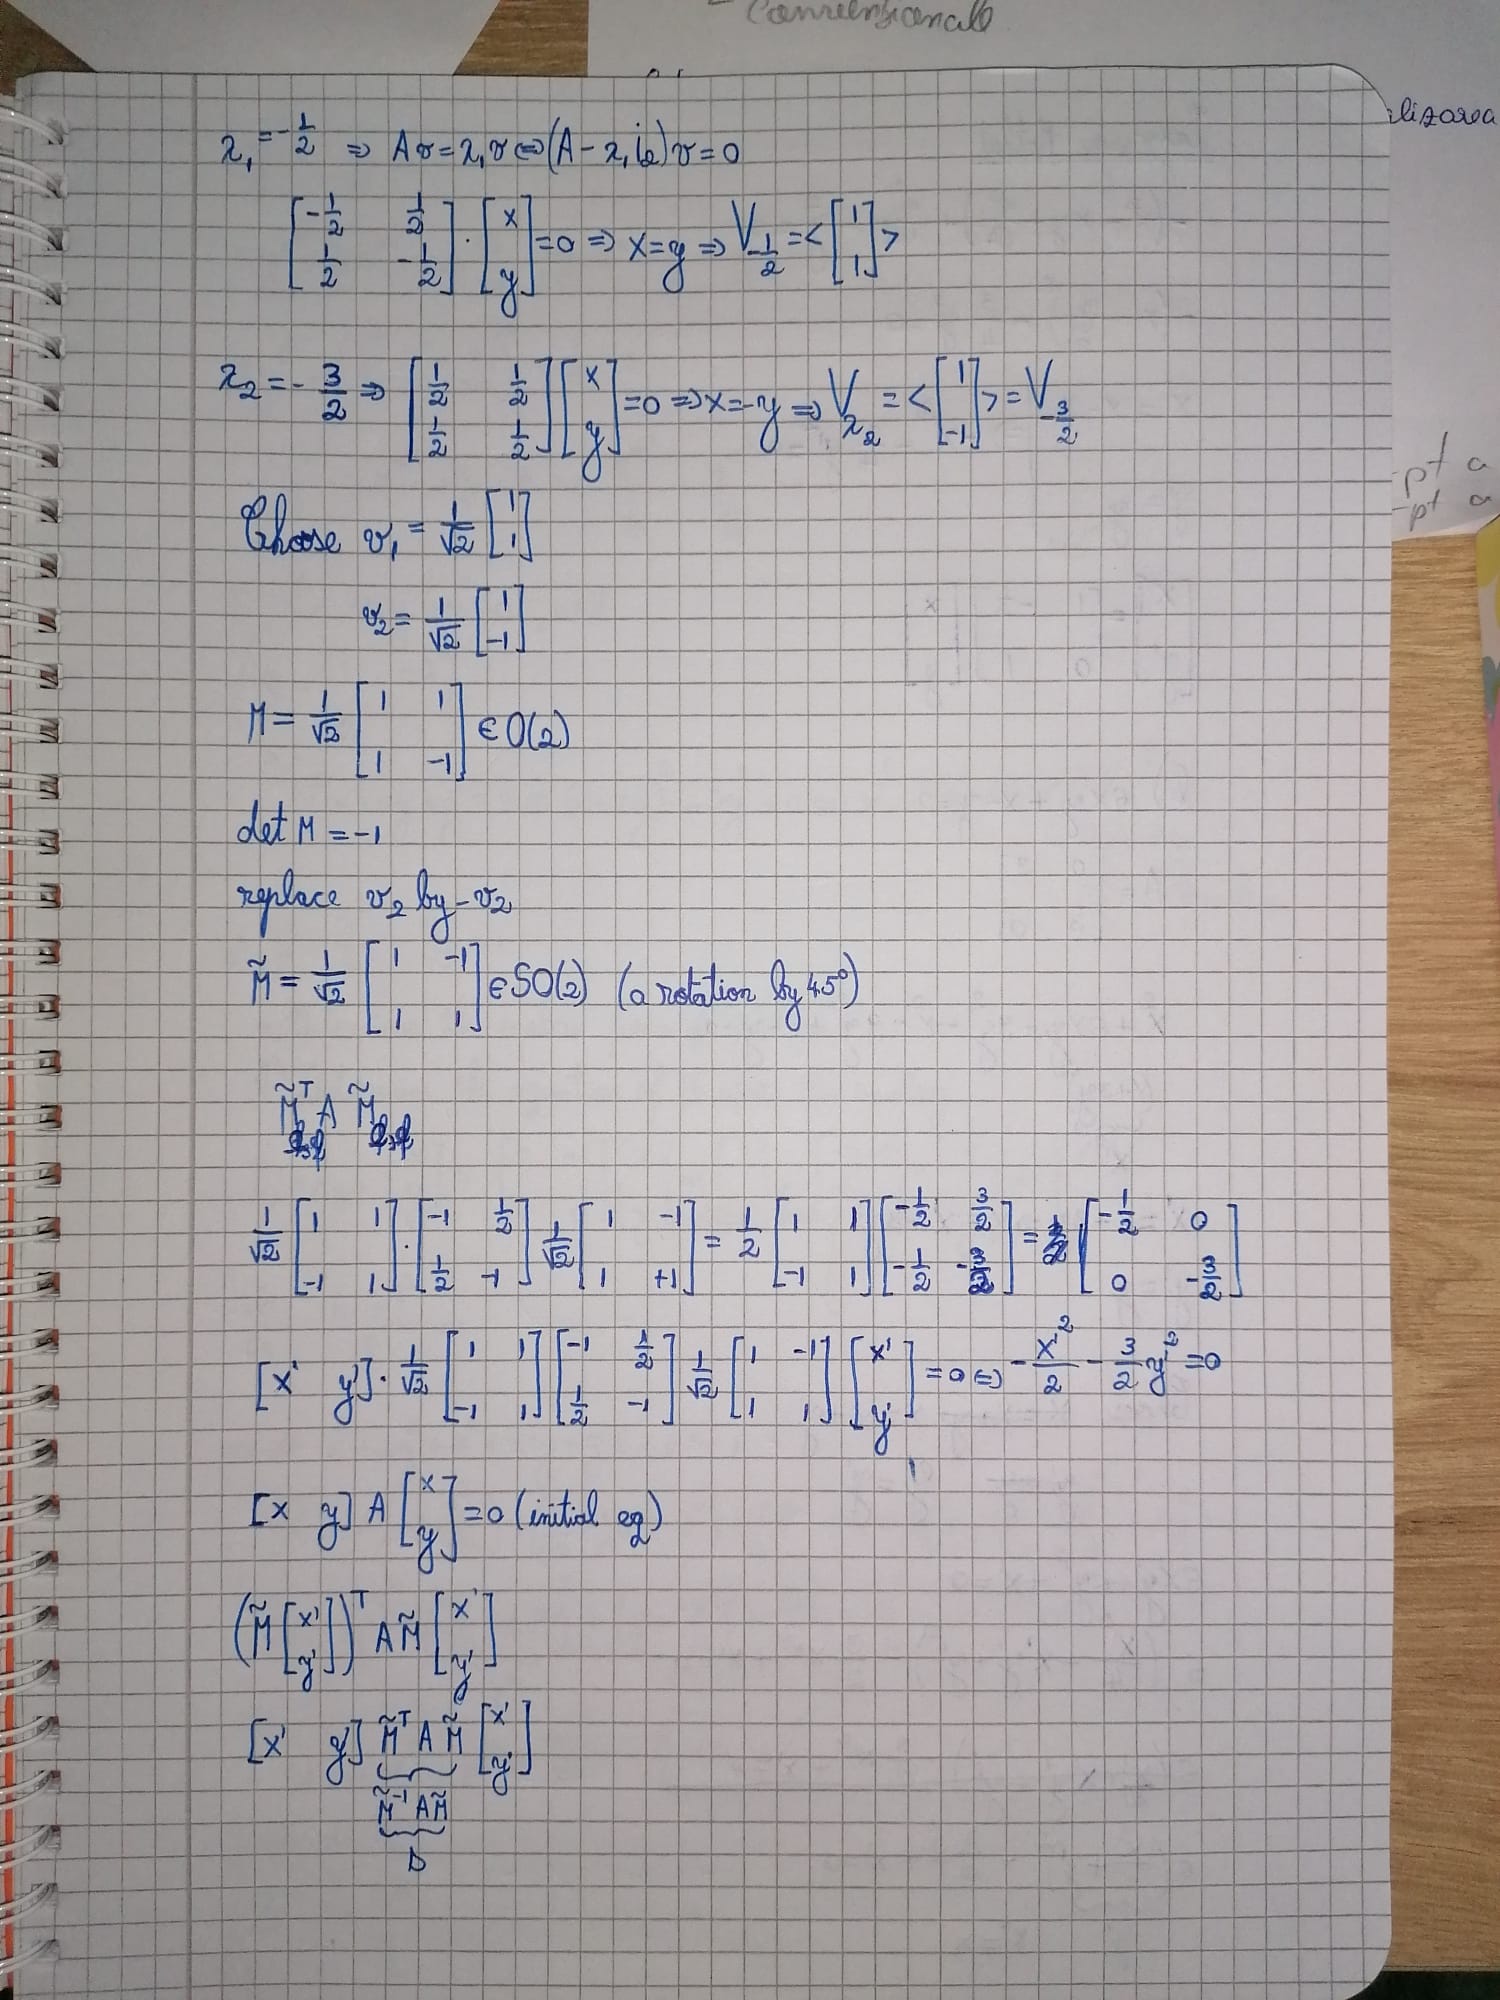 Conventional
lizarea
λ₁ = -1/2 ⇒ Av = λ₁v ⇔ (A - λ₁i₂)v = 0
[-1/2 1/2; 1/2 -1/2] · [x; y] = 0 ⇒ x = y ⇒ V_{-1/2} = <[1; 1]>
λ₂ = -3/2 ⇒ [1/2 1/2; 1/2 1/2] [x; y] = 0 ⇒ x = -y ⇒ V_{λ₂} = <[1; -1]> = V_{-3/2}
-pt a
-pt a
Choose v₁ = 1/√2 [1; 1]
v₂ = 1/√2 [1; -1]
M = 1/√2 [1 1; 1 -1] ∈ O(2)
det M = -1
replace v₂ by -v₂
M̃ = 1/√2 [1 -1; 1 1] ∈ SO(2) (a rotation by 45°)
M̃ᵀ A M̃
1/√2 [1 1; -1 1] · [-1 1/2; 1/2 -1] 1/√2 [1 -1; 1 +1] = 1/2 [1 1; -1 1] [-1/2 3/2; -1/2 -3/2] = [-1/2 0; 0 -3/2]
[x' y'] · 1/√2 [1 1; -1 1] [-1 1/2; 1/2 -1] 1/√2 [1 -1; 1 1] [x'; y'] = 0 ⇔ -x'²/2 - 3/2 y'² = 0
[x y] A [x; y] = 0 (initial eq)
(M̃ [x'; y'])ᵀ A M̃ [x'; y']
[x' y'] M̃ᵀ A M̃ [x'; y']
M̃⁻¹ A M̃
D